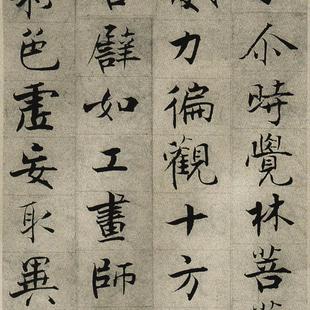 尒時覺林菩
力徧觀十方
譬如工畫師
色虛妄取異